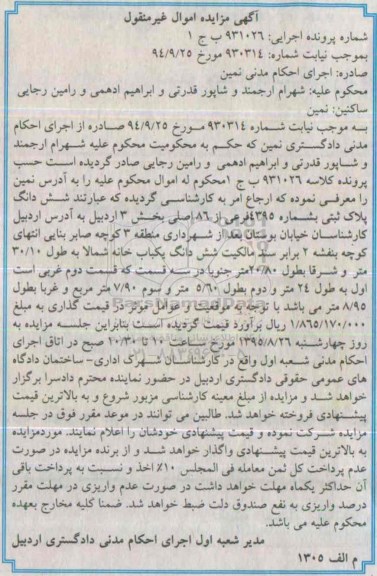 آگهی مزایده اموال غیرمنقول
شماره پرونده اجرایی: ۹۳۱۰۲۶ ب ج ۱
بموجب نیابت شماره: ۹۳۰۳۱۴ مورخ ۹۴/۹/۲۵
صادره: اجرای احکام مدنی نمین
محکوم علیه: شهرام ارجمند و شاپور قدرتی و ابراهیم ادهمی و رامین رجایی
ساکنین: نمین
به موجب نیابت شماره ۹۳۰۳۱۴ مورخ ۹۴/۹/۲۵ صادره از اجرای احکام
مدنی دادگستری نمین که حکم به محکومیت محکوم علیه شهرام ارجمند
و شاپور قدرتی و ابراهیم ادهمی و رامین رجایی صادر گردیده است حسب
پرونده کلاسه ۹۳۱۰۲۶ ب ج ۱محکوم له اموال محکوم علیه را به آدرس نمین
را معرفی نموده که ارجاع امر به کارشناسی گردیده که عبارتند شش دانگ
پلاک ثبتی بشماره ۴۳۹۵فرعی از ۸۶ اصلی بخش ۳ اردبیل به آدرس اردبیل
کارشناسان خیابان بوستان بعد از شهرداری منطقه ۳ کوچه صابر بنایی انتهای
کوچه بنفشه ۲ برابر سند مالکیت شش دانگ یکباب خانه شمالا به طول ۳۰/۱۰
متر و شرقا بطول ۲۰/۸۰متر جنوبا در سه قسمت که قسمت دوم غربی است
اول به طول ۲۴ متر و دوم بطول ۵/۶۰ متر و سوم ۷/۹۰ متر مربع و غربا بطول
۸/۹۵ متر می باشد با توجه به موقعیت و عوامل موثر در قیمت گذاری به مبلغ
۱/۸۶۵/۱۷۰/۰۰۰ ریال برآورد قیمت گردیده است بنابراین جلسه مزایده به
روز چهارشنبه ۱۳۹۵/۸/۲۶ مورخ ساعت ۱۰ تا ۱۰/۳۰ صبح در اتاق اجرای
احکام مدنی شعبه اول واقع در کارشناسان شهرک اداری- ساختمان دادگاه
های عمومی حقوقی دادگستری اردبیل در حضور نماینده محترم دادسرا برگزار
خواهد شد و مزایده از مبلغ معینه کارشناسی مزبور شروع و به بالاترین قیمت
پیشنهادی فروخته خواهد شد. طالبین می توانند در موعد مقرر فوق در جلسه
مزایده شرکت نموده و قیمت پیشنهادی خودشان را اعلام نمایند. موردمزایده
به بالاترین قیمت پیشنهادی واگذار خواهد شد و از برنده مزایده در صورت
عدم پرداخت کل ثمن معامله فی المجلس ۱۰٪ اخذ و نسبت به پرداخت باقی
آن حداکثر یکماه مهلت خواهد داشت در صورت عدم واریزی در مهلت مقرر
درصد واریزی به نفع صندوق دلت ضبط خواهد شد. ضمنا کلیه مخارج بعهده
محکوم علیه می باشد.
مدیر شعبه اول اجرای احکام مدنی دادگستری اردبیل
م الف ۱۳۰۵